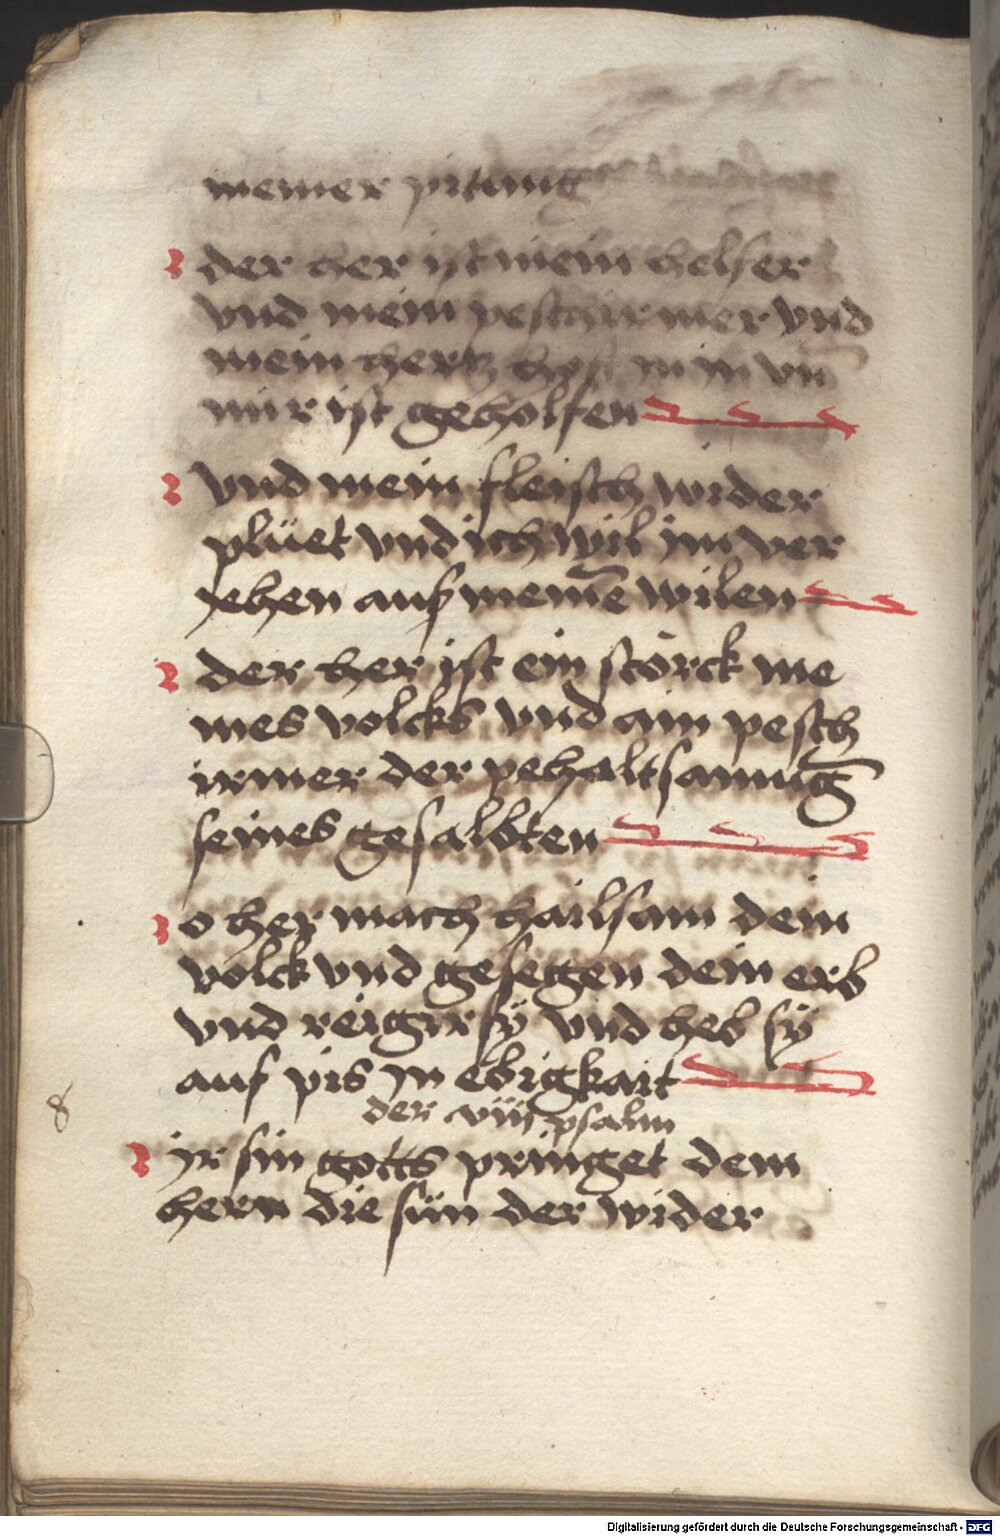 meiner pitung
der her ist mein helfer
vnd mein peschirmer vnd
mein hertz in im vn̄
mir ist geholfen
vnd mein fleisch wider
plüet vnd ich wil im ver
jehen auß meinē wilen
der her ist ein störck me
mes volcks vnd aim pesch
irmer der pehaltsamūg
seines gesalbten
o her mach hailsam dein
volck vnd gesegen dein erb
vnd reigir sÿ vnd heb sÿ
auf pis in ebigkait
der viii psalm
8
ir sin gotts pringet dem
hern die sün der wider
Digitalisierung gefördert durch die Deutsche Forschungsgemeinschaft - DFG